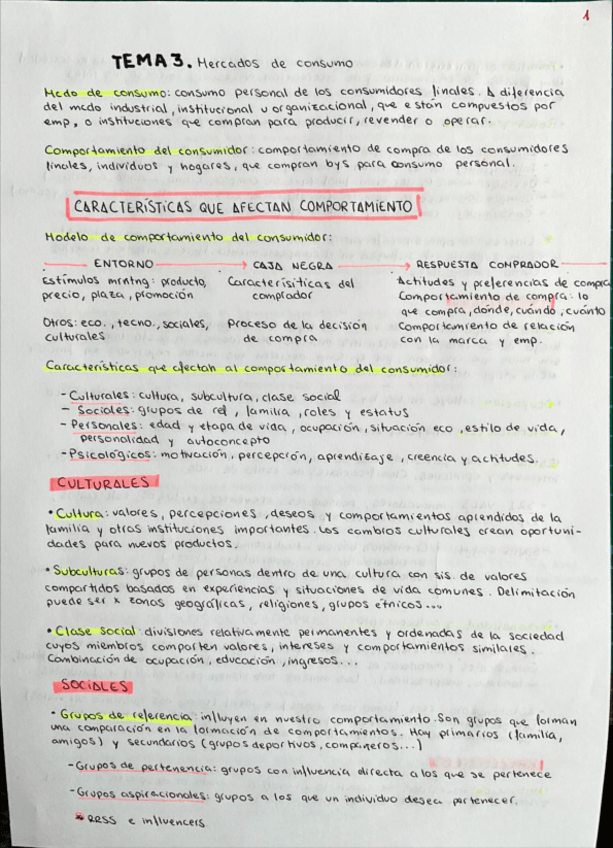 1
TEMA 3. Mercados de consumo
Mcdo de consumo: consumo personal de los consumidores finales. A diferencia
del mcdo industrial, institucional u organizacional, que están compuestos por
emp, o instituciones que compran para producir, revender o operar.
Comportamiento del consumidor: comportamiento de compra de los consumidores
finales, individuos y hogares, que compran bys para consumo personal.
CARACTERÍSTICAS QUE AFECTAN COMPORTAMIENTO
Modelo de comportamiento del consumidor:
ENTORNO → CAJA NEGRA → RESPUESTA COMPRADOR
Estímulos mrktng: producto, Características del Actitudes y preferencias de compra
precio, plaza, promoción comprador Comportamiento de compra: lo
que compra, dónde, cuándo, cuánto
Otros: eco., tecno., sociales, Proceso de la decisión Comportamiento de relación
culturales de compra con la marca y emp.
Características que afectan al comportamiento del consumidor:
- Culturales: cultura, subcultura, clase social
- Sociales: grupos de ref, familia, roles y estatus
- Personales: edad y etapa de vida, ocupación, situación eco, estilo de vida,
personalidad y autoconcepto
- Psicológicos: motivación, percepción, aprendizaje, creencia y actitudes.
CULTURALES
• Cultura: valores, percepciones, deseos y comportamientos aprendidos de la
familia y otras instituciones importantes. Los cambios culturales crean oportuni-
dades para nuevos productos.
• Subculturas: grupos de personas dentro de una cultura con sis. de valores
compartidos basados en experiencias y situaciones de vida comunes. Delimitación
puede ser x zonas geográficas, religiones, grupos étnicos...
• Clase social: divisiones relativamente permanentes y ordenadas de la sociedad
cuyos miembros comparten valores, intereses y comportamientos similares.
Combinación de ocupación, educación, ingresos...
SOCIALES
• Grupos de referencia: influyen en nuestro comportamiento. Son grupos que forman
una comparación en la formación de comportamientos. Hay primarios (familia,
amigos) y secundarios (grupos deportivos, compañeros...)
- Grupos de pertenencia: grupos con influencia directa a los que se pertenece
- Grupos aspiracionales: grupos a los que un individuo desea pertenecer.
* RRSS e influencers